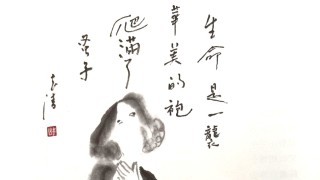 生命是一襲
華美的袍
爬滿了
蚤子